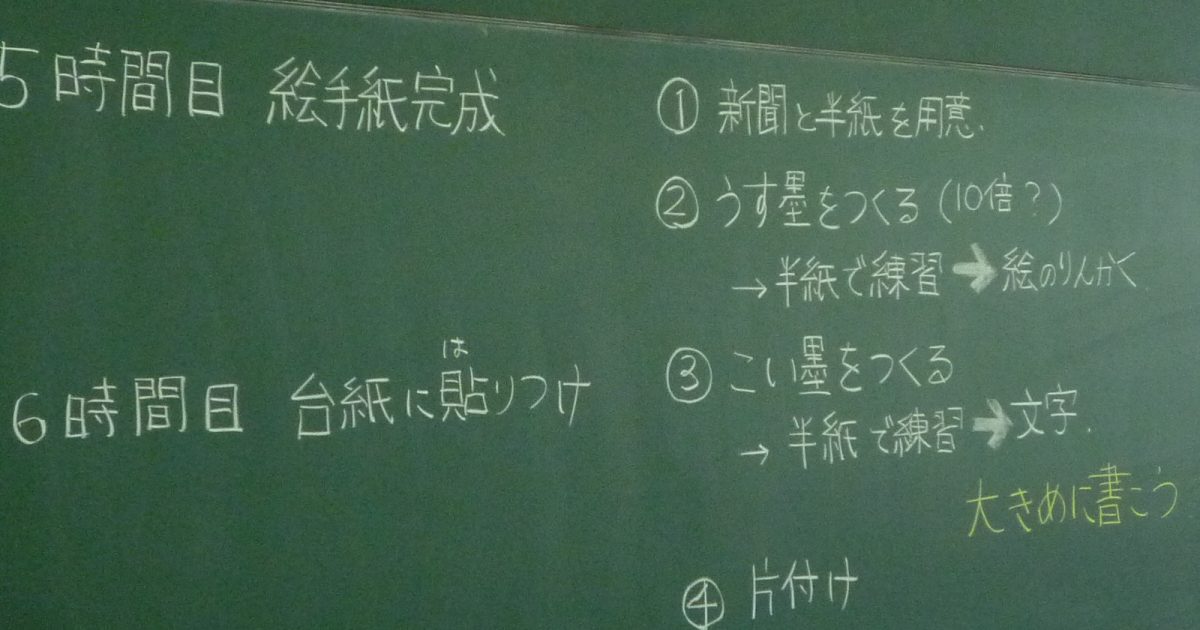 5時間目 絵手紙完成
6時間目 台紙に貼りつけ
は
① 新聞と半紙を用意.
② うす墨をつくる(10倍?)
→半紙で練習➔絵のりんかく
③ こい墨をつくる
→半紙で練習➔文字.
大きめに書こう
④ 片付け